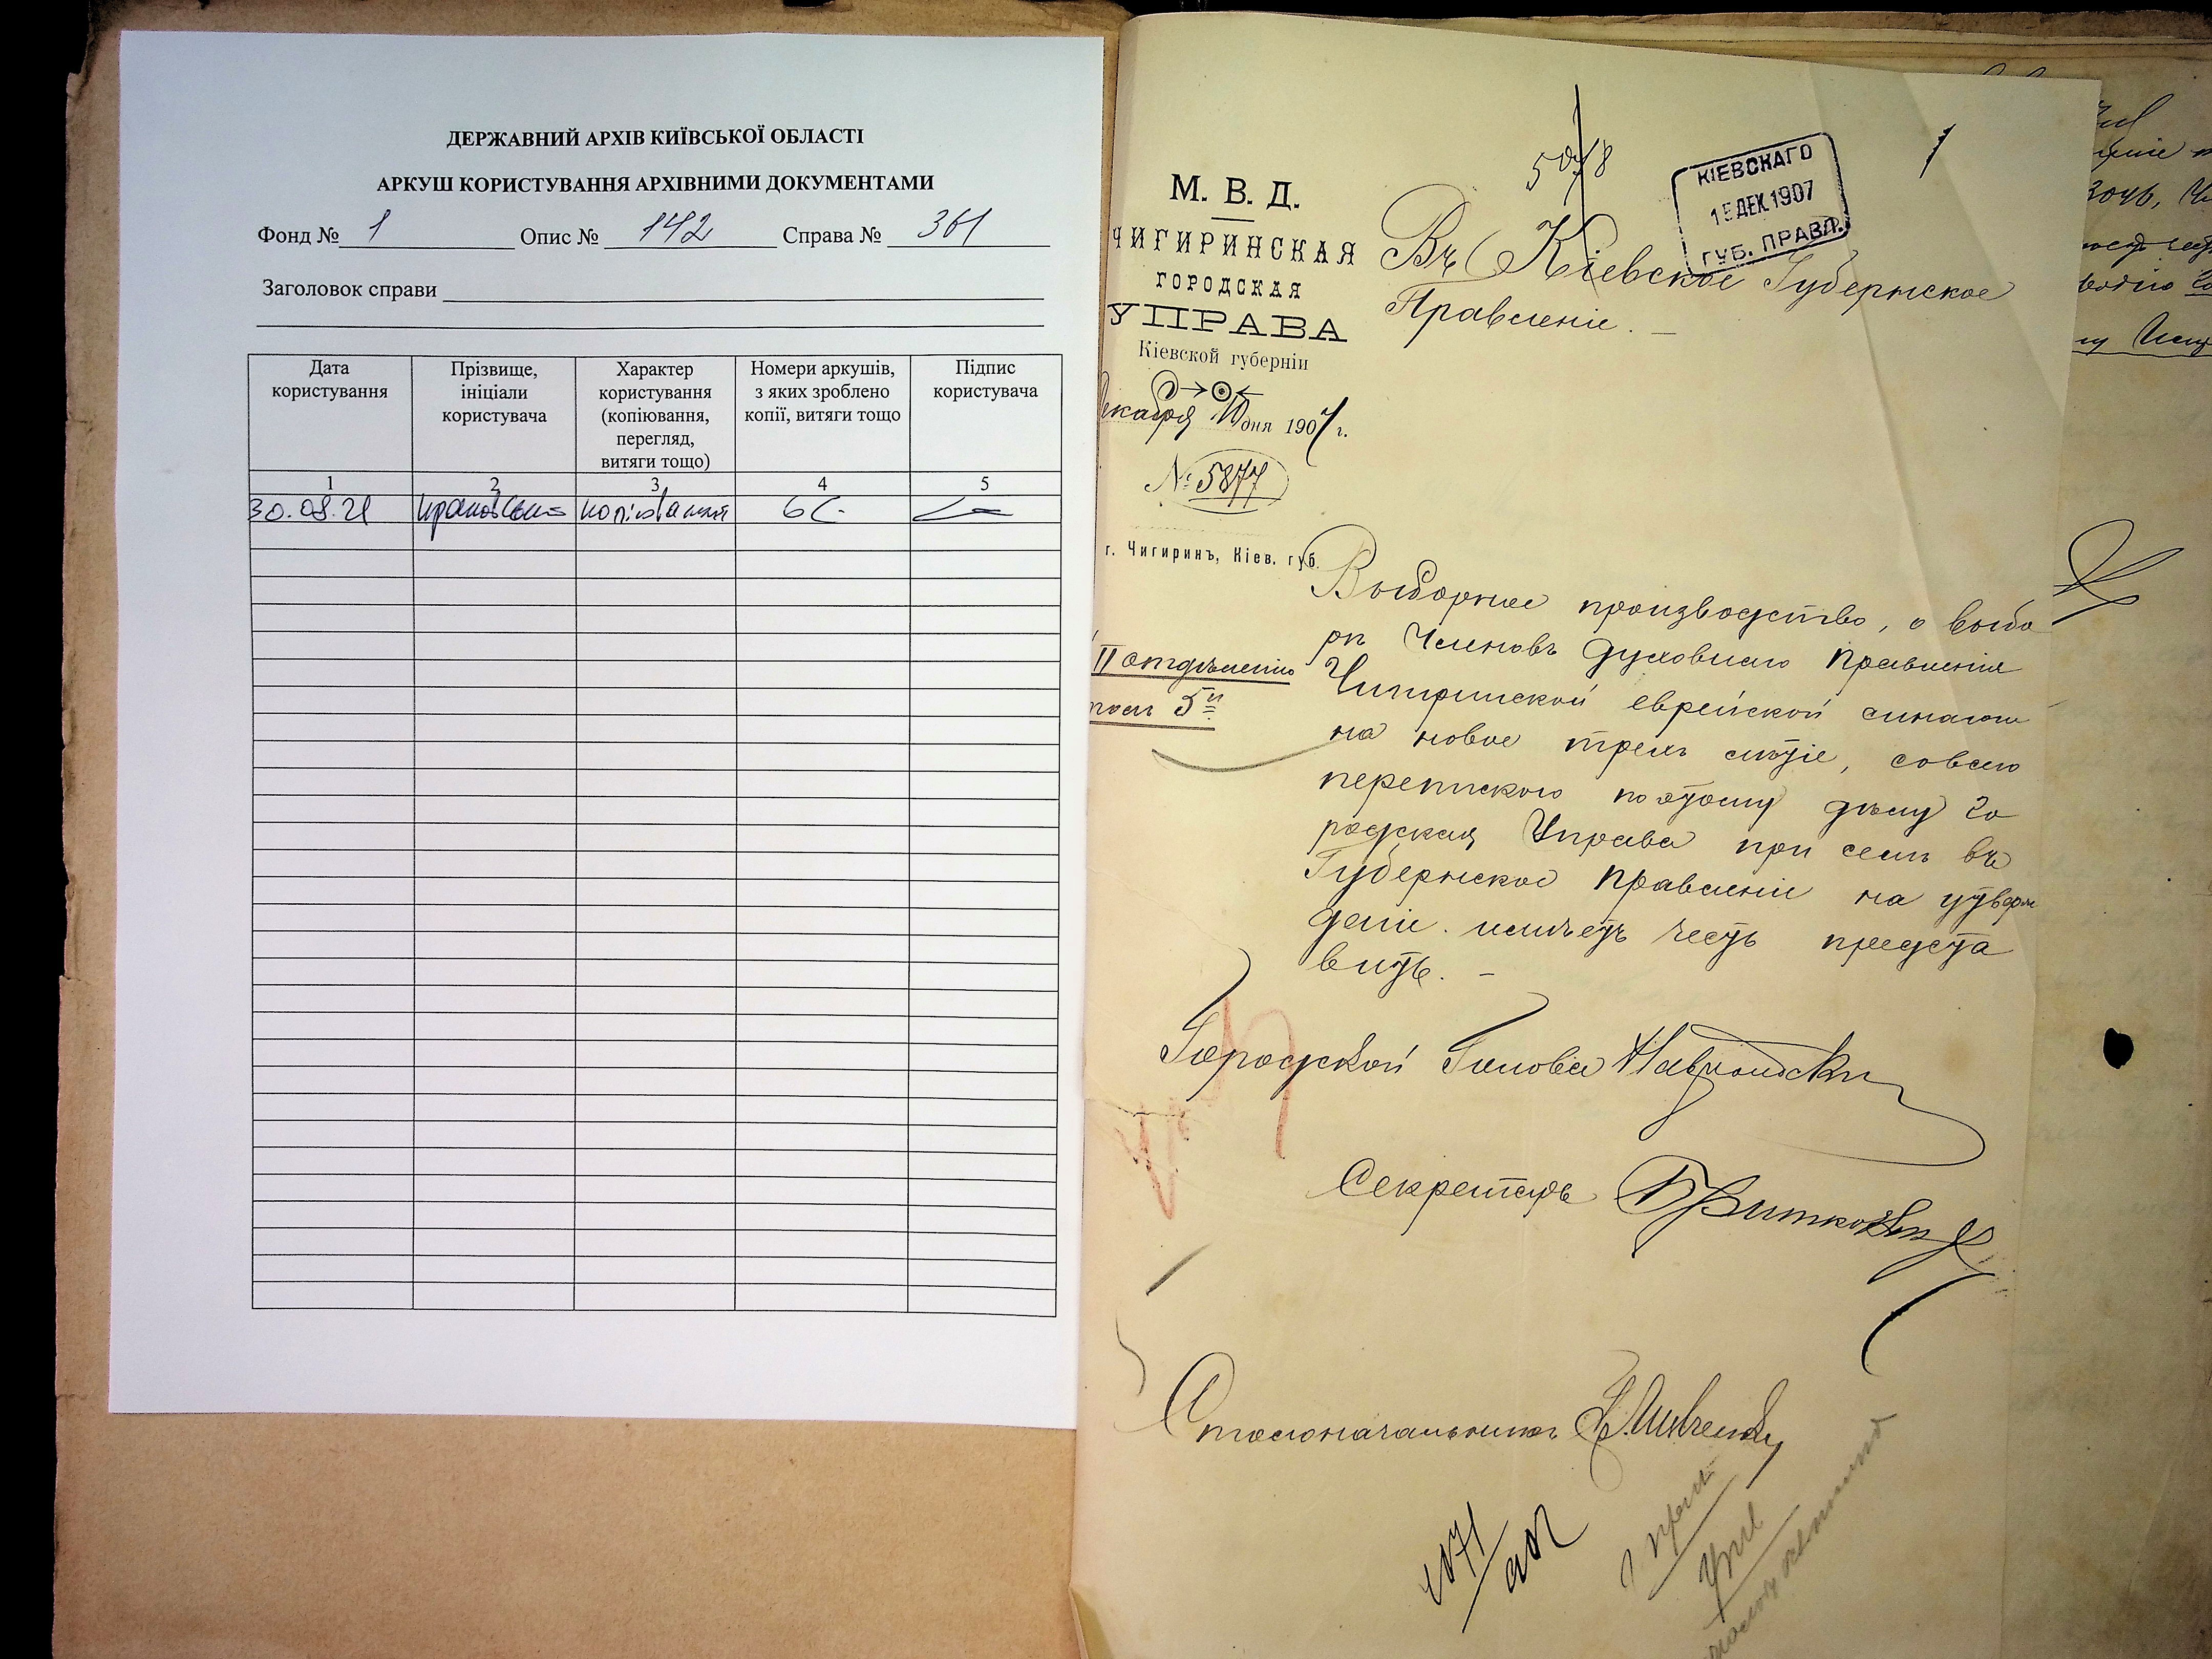 ДЕРЖАВНИЙ АРХІВ КИЇВСЬКОЇ ОБЛАСТІ
АРКУШ КОРИСТУВАННЯ АРХІВНИМИ ДОКУМЕНТАМИ
Фонд № 1 Опис № 142 Справа № 361
Заголовок справи
Дата користування
Прізвище, ініціали користувача
Характер користування (копіювання, перегляд, витяги тощо)
Номери аркушів, з яких зроблено копії, витяги тощо
Підпис користувача
1 2 3 4 5
30.08.21 копіювання
5078
1
КІЕВСКАГО
15 ДЕК. 1907
ГУБ. ПРАВЛ.
М. В. Д.
ЧИГИРИНСКАЯ
ГОРОДСКАЯ
УПРАВА
Кіевской губерніи
дня 1907 г.
№ 5877
г. Чигиринъ, Кіев. губ.
II отдѣленію
5й
Въ Кіевское Губернское
Правленіе. –
Выборное производство, о выбо
рѣ Членовъ духовнаго Правленія
Чигиринской еврейской синагоги
на новое трехъ лѣтіе, совсею
перепискою поэтому дѣлу Го
родская Управа при семъ въ
Губернское Правленіе на утверж
деніе. имѣетъ честь предста
вить. –
Городской Голова
Секретарь
Столоначальникъ